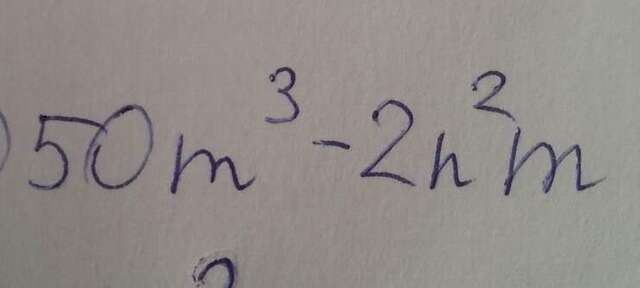 ) 50m³ - 2n²m